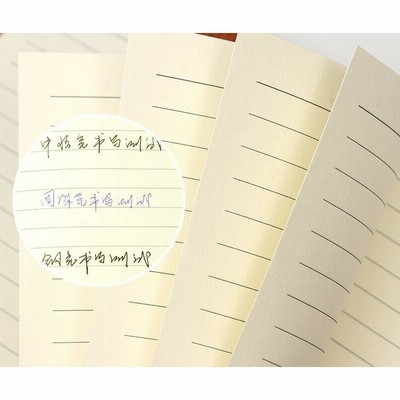 中性笔书写测试
圆珠笔书写测试
钢笔书写测试